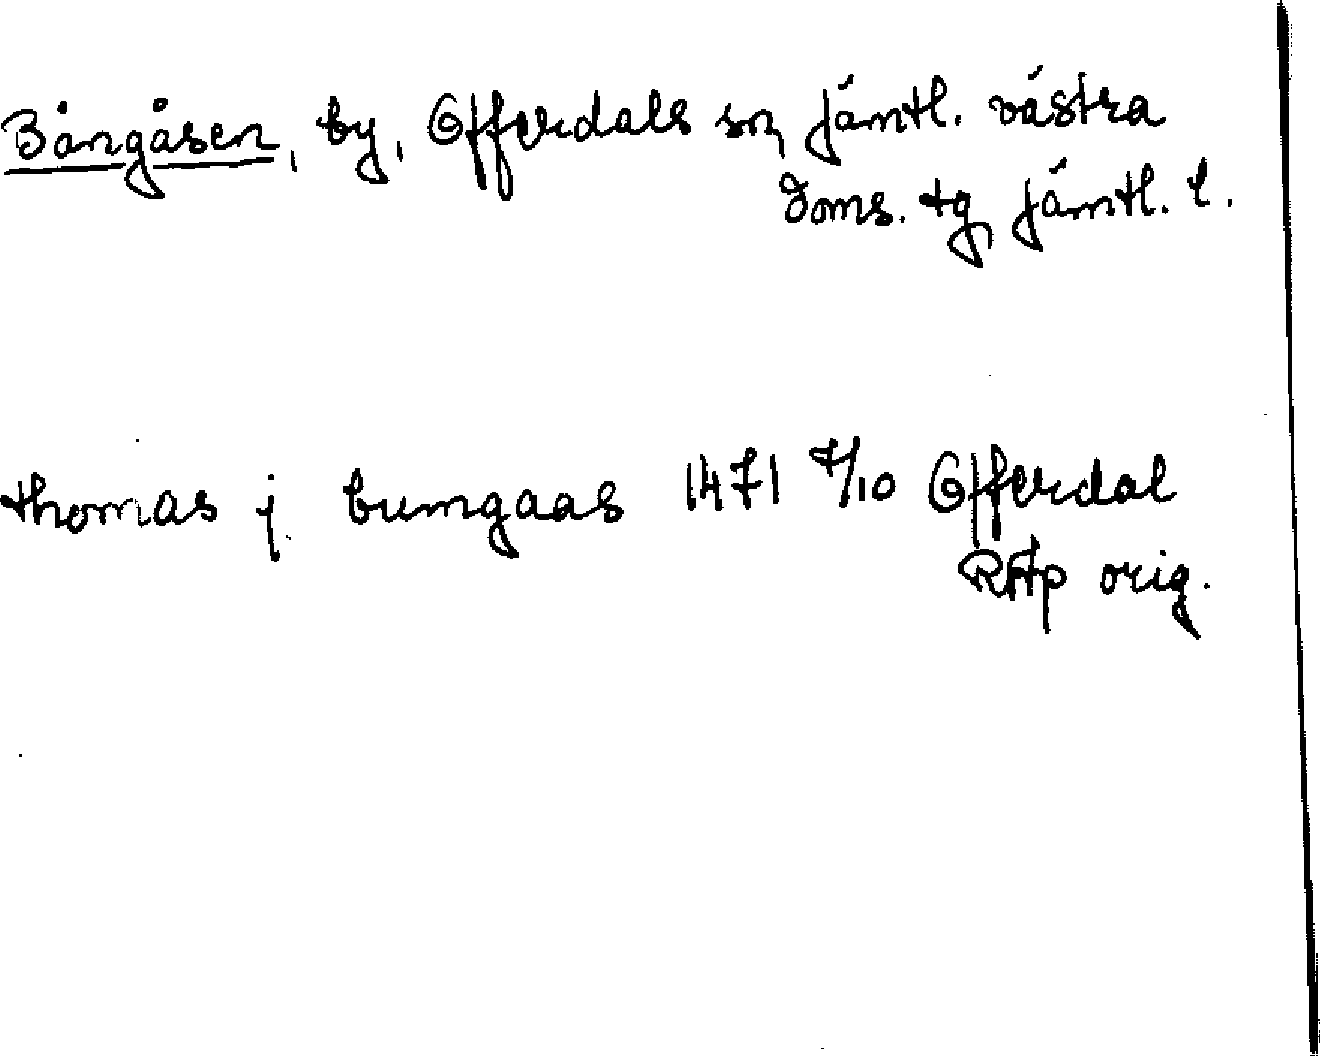 Bångåsen, by, Offerdals sn, Jämtl. västra
doms. tg, Jämtl. l.
thomas j bumgaas 1471 7/10 Offerdal
RAp orig.